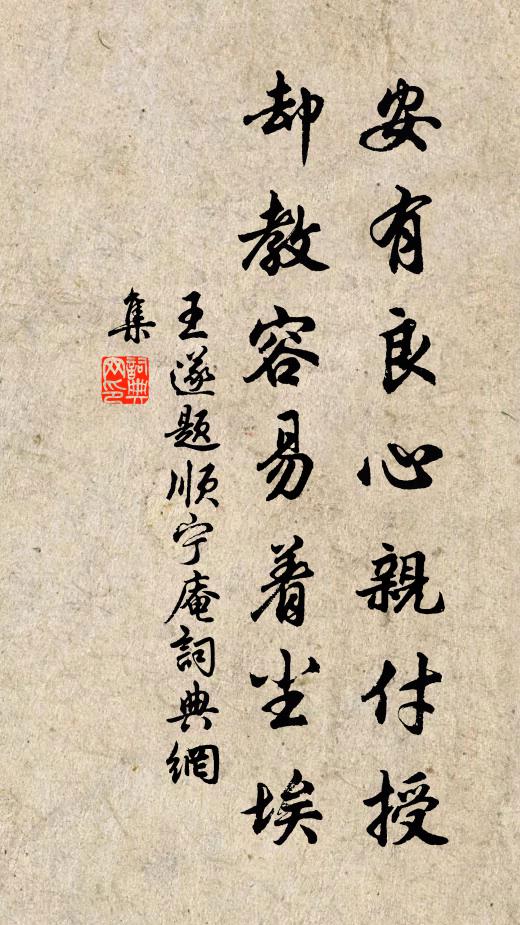 安有良心親付授
却教容易着尘埃
王遂题顺宁庵詞典網
集
詞典
网印